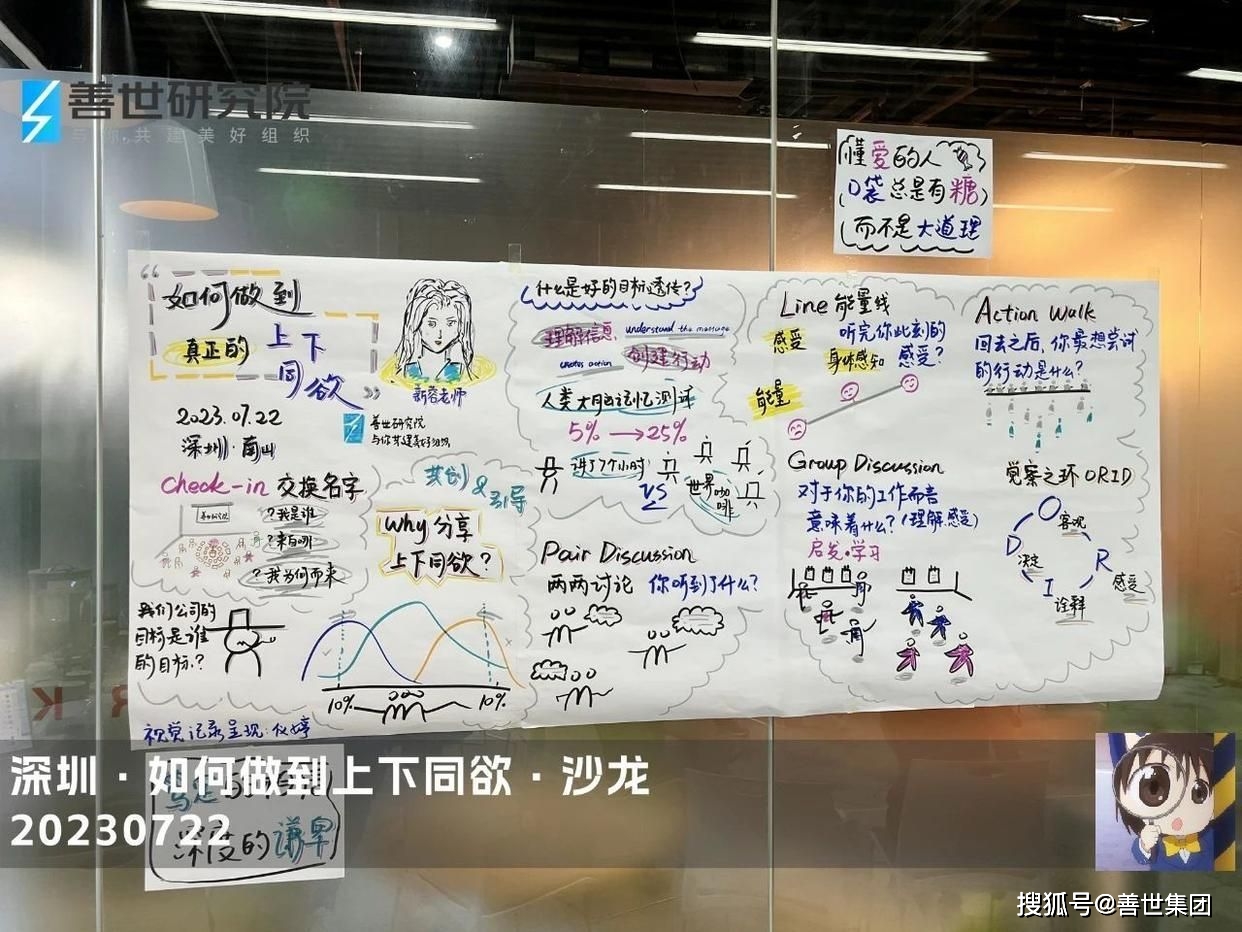 善世研究院
与你共建美好组织
懂爱的人
口袋总是有糖
而不是大道理
如何做到
真正的
上下
同欲
2023.07.22
深圳·南山
善世研究院
与你共建美好组织
Check-in 交换名字
? 我是谁
? 来自哪
? 我为何而来
我们公司的
目标是谁
的目标?
共创&引导
Why 分享
上下同欲?
10%
10%
视觉记录呈现:
什么是好的目标透传?
理解信息 understand the message
creates action 创建行动
人类大脑记忆测试
5% → 25%
讲了7个小时
VS
世界咖啡
Pair Discussion
两两讨论 你听到了什么?
Line 能量线
感受
听完你此刻的
身体感知 感受?
能量
Group Discussion
对于你的工作而言
意味着什么? (理解.感受)
启发·学习
Action Walk
回去之后,你最想尝试
的行动是什么?
觉察之环 ORID
O
客观
R
感受
I
诠释
D
决定
深圳·如何做到上下同欲·沙龙
20230722
深度的谦卑
搜狐号@善世集团